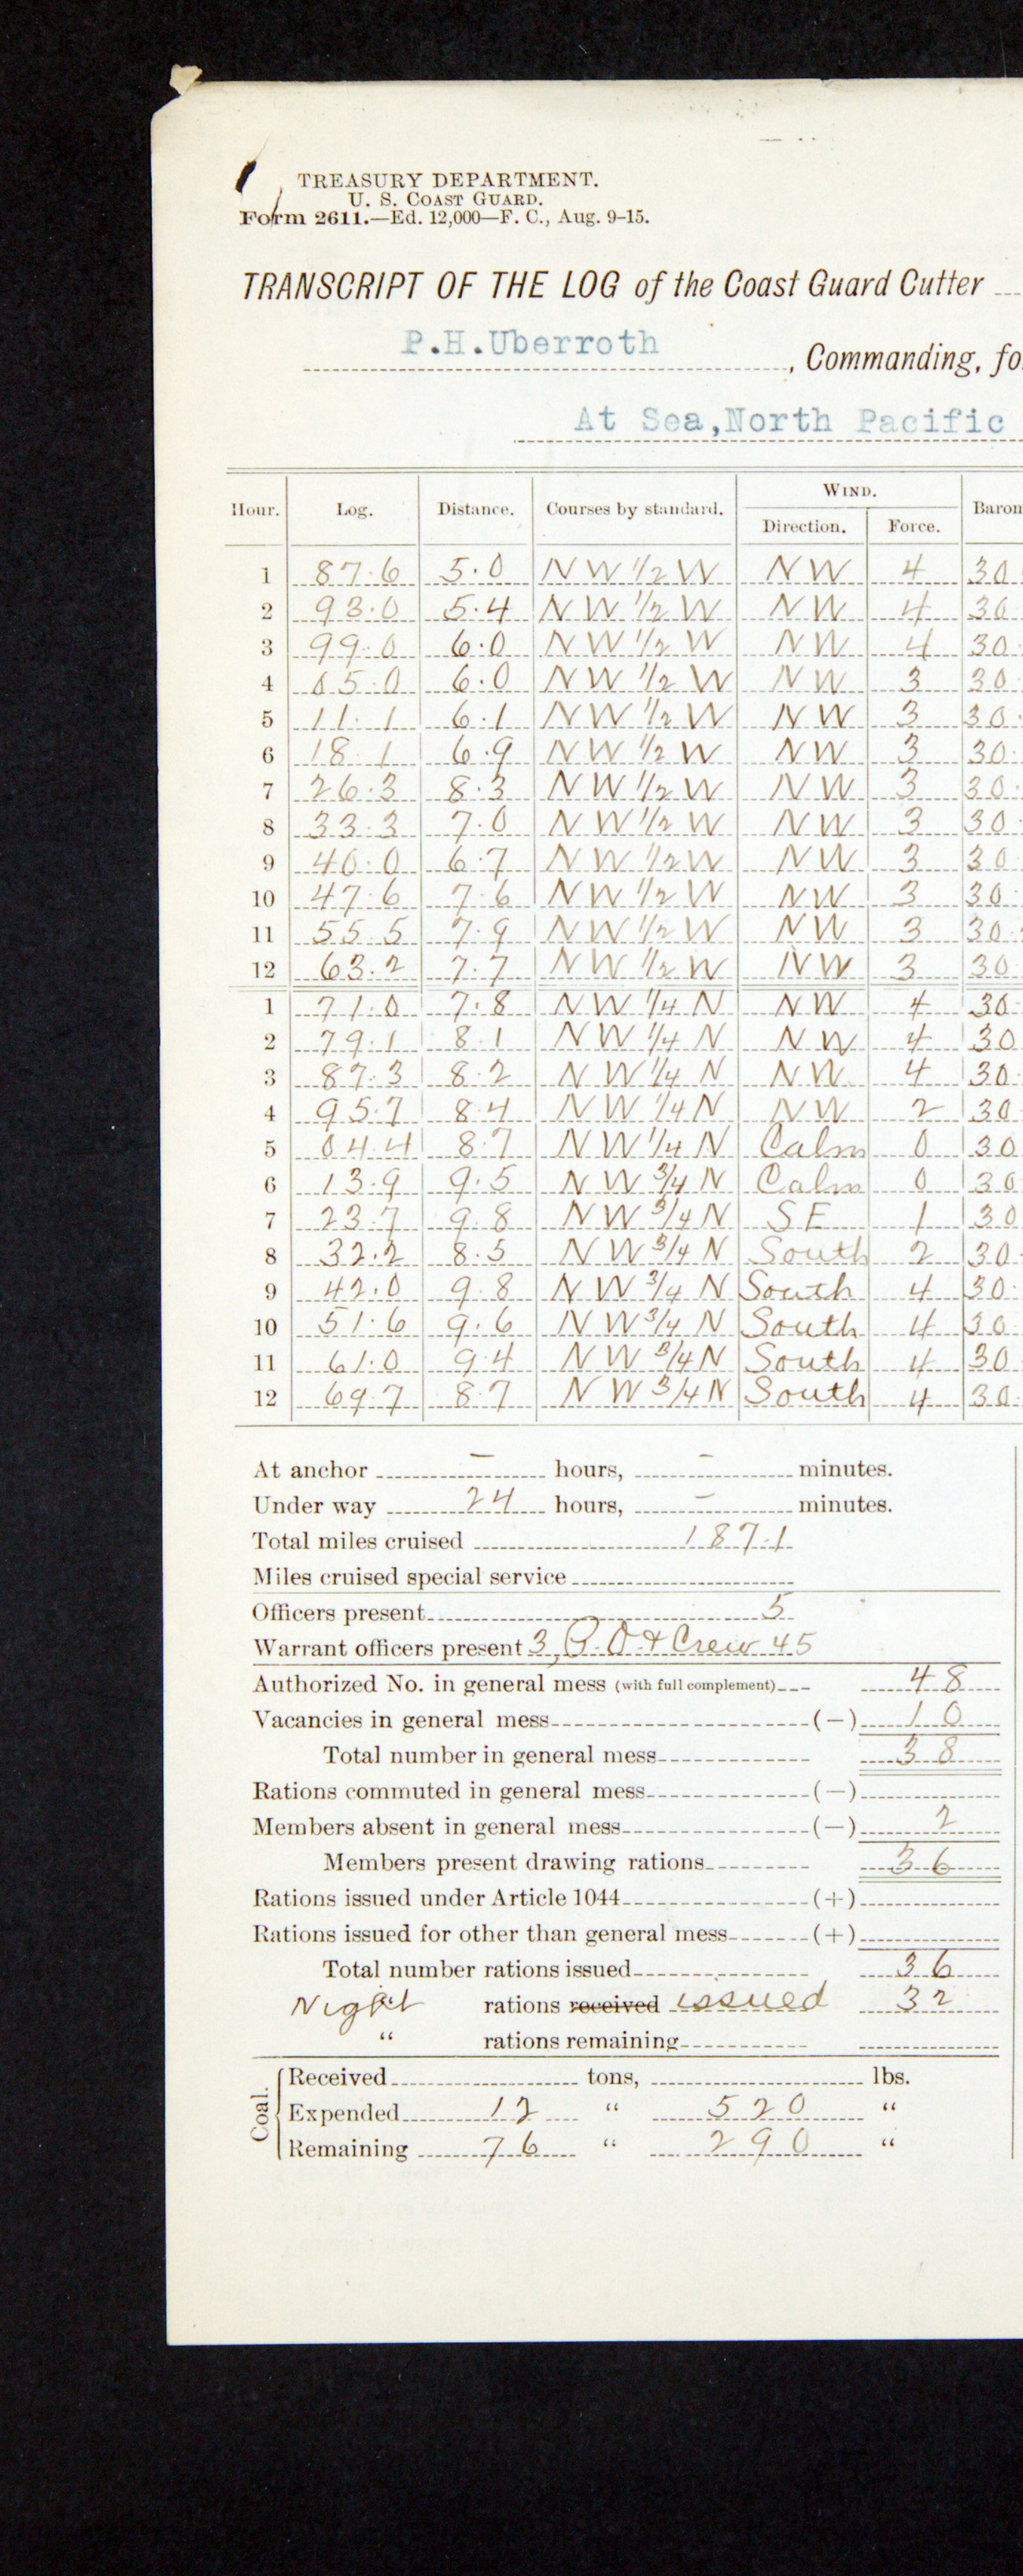 TREASURY DEPARTMENT.
U. S. COAST GUARD.
Form 2611.—Ed. 12,000—F. C., Aug. 9-15.
TRANSCRIPT OF THE LOG of the Coast Guard Cutter
P.H.Uberroth , Commanding, fo
At Sea, North Pacific
WIND.
Hour. Log. Distance. Courses by standard. Direction. Force. Baron
1 87.6 5.0 NW 1/2 W NW 4 30
2 93.0 5.4 NW 1/2 W NW 4 30
3 99.0 6.0 NW 1/2 W NW 4 30
4 05.0 6.0 NW 1/2 W NW 3 30
5 11.1 6.1 NW 1/2 W NW 3 30
6 18.1 6.9 NW 1/2 W NW 3 30
7 26.3 8.3 NW 1/2 W NW 3 30
8 33.3 7.0 NW 1/2 W NW 3 30
9 40.0 6.7 NW 1/2 W NW 3 30
10 47.6 7.6 NW 1/2 W NW 3 30
11 55.5 7.9 NW 1/2 W NW 3 30
12 63.2 7.7 NW 1/2 W NW 3 30
1 71.0 7.8 NW 1/4 N NW 4 30
2 79.1 8.1 NW 1/4 N NW 4 30
3 87.3 8.2 NW 1/4 N NW 4 30
4 95.7 8.4 NW 1/4 N NW 2 30
5 04.4 8.7 NW 1/4 N Calm 0 30
6 13.9 9.5 NW 3/4 N Calm 0 30
7 23.7 9.8 NW 3/4 N SE 1 30
8 32.2 8.5 NW 3/4 N South 2 30
9 42.0 9.8 NW 3/4 N South 4 30
10 51.6 9.6 NW 3/4 N South 4 30
11 61.0 9.4 NW 3/4 N South 4 30
12 69.7 8.7 NW 3/4 N South 4 30
At anchor – hours, – minutes.
Under way 24 hours, – minutes.
Total miles cruised 187.1
Miles cruised special service
Officers present 5
Warrant officers present 3, P.O. & Crew 45
Authorized No. in general mess (with full complement) 48
Vacancies in general mess (—) 10
Total number in general mess 38
Rations commuted in general mess (—)
Members absent in general mess (—) 2
Members present drawing rations 36
Rations issued under Article 1044 (+)
Rations issued for other than general mess (+)
Total number rations issued 36
Night rations received issued 32
" rations remaining
Coal. Received tons, lbs.
Expended 12 " 520 "
Remaining 76 " 290 "